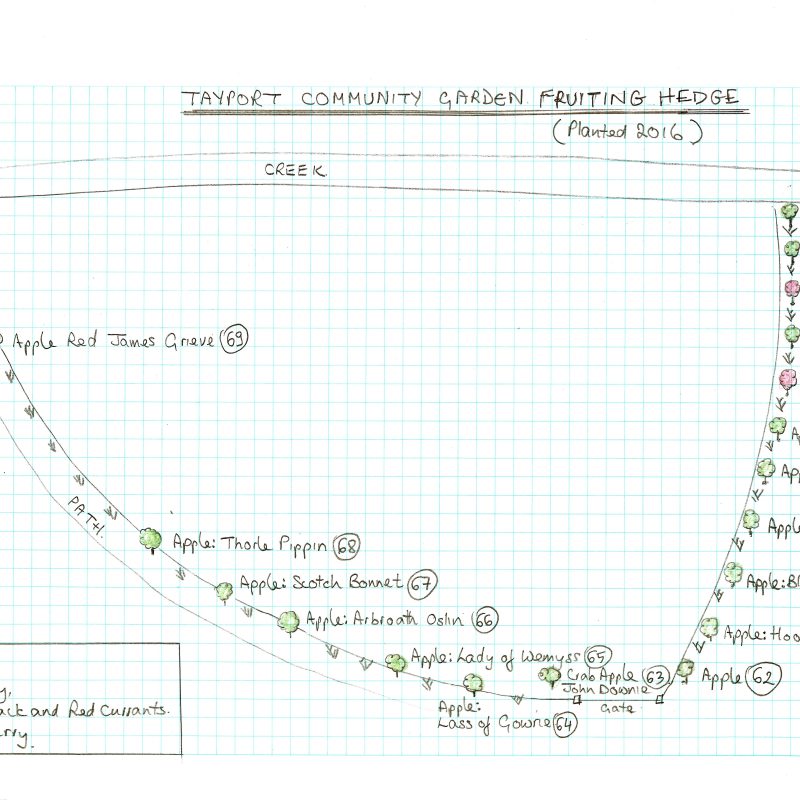 TAYPORT COMMUNITY GARDEN FRUITING HEDGE
(Planted 2016)
CREEK
Apple Red James Grieve 69
PATH.
Apple: Thorle Pippin 68
Apple: Scotch Bonnet 67
Apple: Arbroath Oslin 66
Apple: Lady of Wemyss 65
Apple:
Lass of Gowrie 64
Crab Apple 63
John Downie
Gate
Apple 62
Apple: Hoo
Apple: Bl
Apple
Ap
A
y,
ack and Red Currants.
rry.